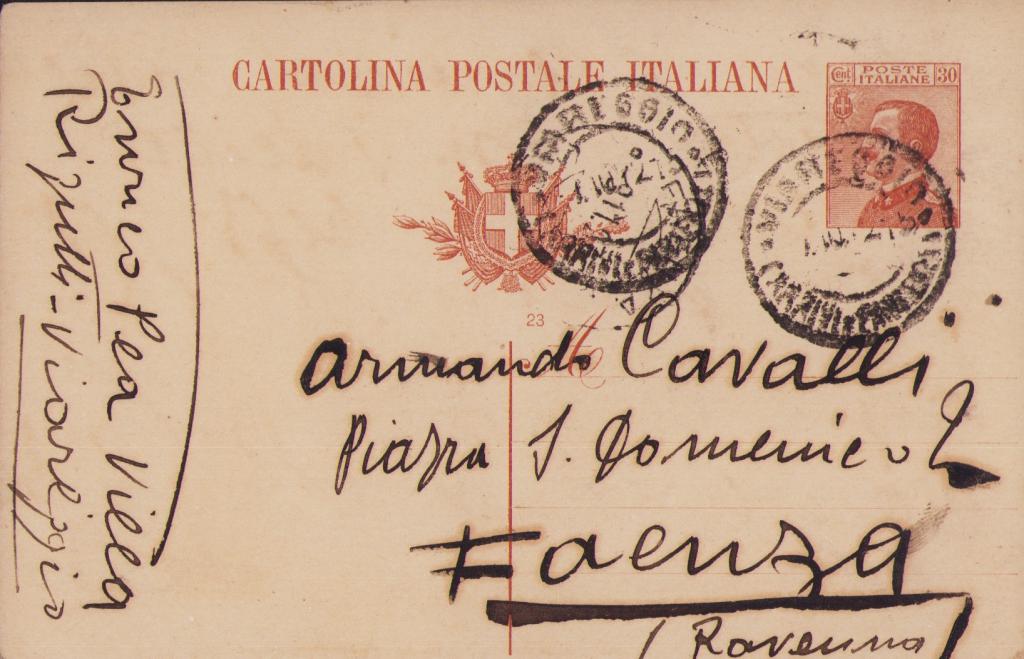 CARTOLINA POSTALE ITALIANA
Cent POSTE ITALIANE 30
VIAREGGIO
VIAREGGIO
23
A
Armando Cavalli
Piazza S. Domenico 2
Faenza
(Ravenna)
Enrico Pea Villa
Viareggio